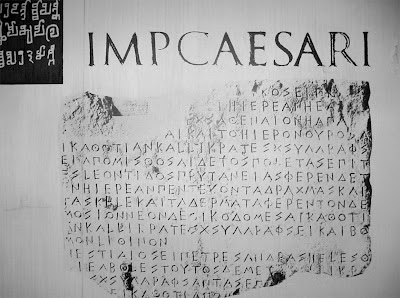 IMPCAESARI
ΚΟΣΕΙΠ
ΗΙΕΡΕΑΝΗΕΑ
ΕΝΑΙΟΝΗΑΠΑ
ΑΙΚΑΙΤΟΗΙΕΡΟΝΘΥΡΟΣ
ΙΚΑΘΟΤΙΑΝΚΑΛΛΙΚΡΑΤΕΣΧΣΥΛΛΡΑΦΣ
ΕΙΑΠΟΜΙΣΘΟΣΑΙΔΕΤΟΣΠΟΛΕΤΑΣΕΠΙΤ
ΕΣΛΕΟΝΤΙΔΟΣΠΡΥΤΑΝΕΙΑΣΦΕΡΕΝΔΕΤ
ΕΝΗΙΕΡΕΑΝΠΕΝΤΕΚΟΝΤΑΔΡΑΧΜΑΣΚΑΙ
ΤΑΣΚΕΛΕΚΑΙΤΑΔΕΡΜΑΤΑΦΕΡΕΝΤΟΝΔΕ
ΜΟΣΙΟΝΝΕΟΝΔΕΟΙΚΟΔΟΜΕΣΑΙΚΑΘΟΤΙ
ΑΝΚΑΛΛΙΚΡΑΤΕΣΧΣΥΛΛΡΑΦΣΕΙΚΑΙΒΟ
ΜΟΝΛΙΘΙΝΟΝ
ΗΕΣΤΙΑΙΟΣΕΙΠΕΤΡΕΣΑΝΔΡΑΣΗΕΛΕΣΘ
ΑΙΕΛΒΟΛΕΣΤΟΥΤΟΣΔΕΜΕΤ
ΣΧΣΥΛΛΡΑΦΣΑΝΤΑΣΕΠ
ΚΑΘΟΤΙΑΠΟΜ